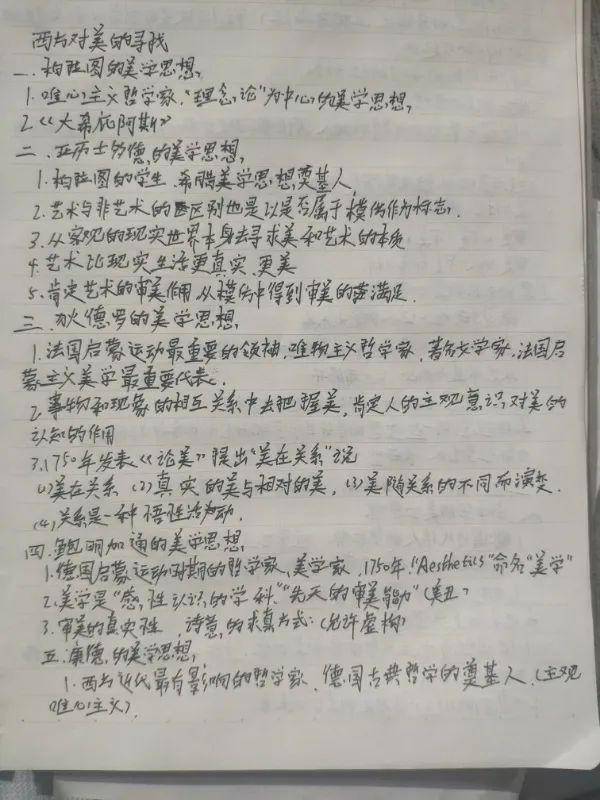 西方对美的寻找
一.柏拉图的美学思想,
1.唯心主义哲学家."理念论"为中心的美学思想,
2.《大希庇阿斯》
二.亚历士多德,的美学思想,
1.柏拉图的学生.希腊美学思想奠基人,
2.艺术与非艺术的区别也是以是否属于模仿作为标志.
3.从客观的现实世界本身去寻求美和艺术的本质
4.艺术比现实生活更真实.更美
5.肯定艺术的审美作用.从模仿中得到审美的满足.
三.狄德罗的美学思想,
1.法国启蒙运动最重要的领袖.唯物主义哲学家,著名文学家.法国启
蒙主义美学最重要代表.
2.事物和现象的相互关系中去把握美,肯定人的主观意识,对美的
认知的作用
3.1750年发表《论美》提出"美在关系"说
(1)美在关系 (2)真实的美与相对的美,(3)美随关系的不同而演变.
(4)关系是一种悟性活动.
四.鲍明加通的美学思想,
1.德国启蒙运动时期的哲学家、美学家,1750年."Aesthetics"命名"美学"
2.美学是"感性认识的学科""先天的审美能力"(美丑)
3.审美的真实性 诗意的求真方式:(允许虚构)
五.康德,的美学思想,
1.西方近代最有影响的哲学家.德国古典哲学的奠基人.(主观
唯心主义)